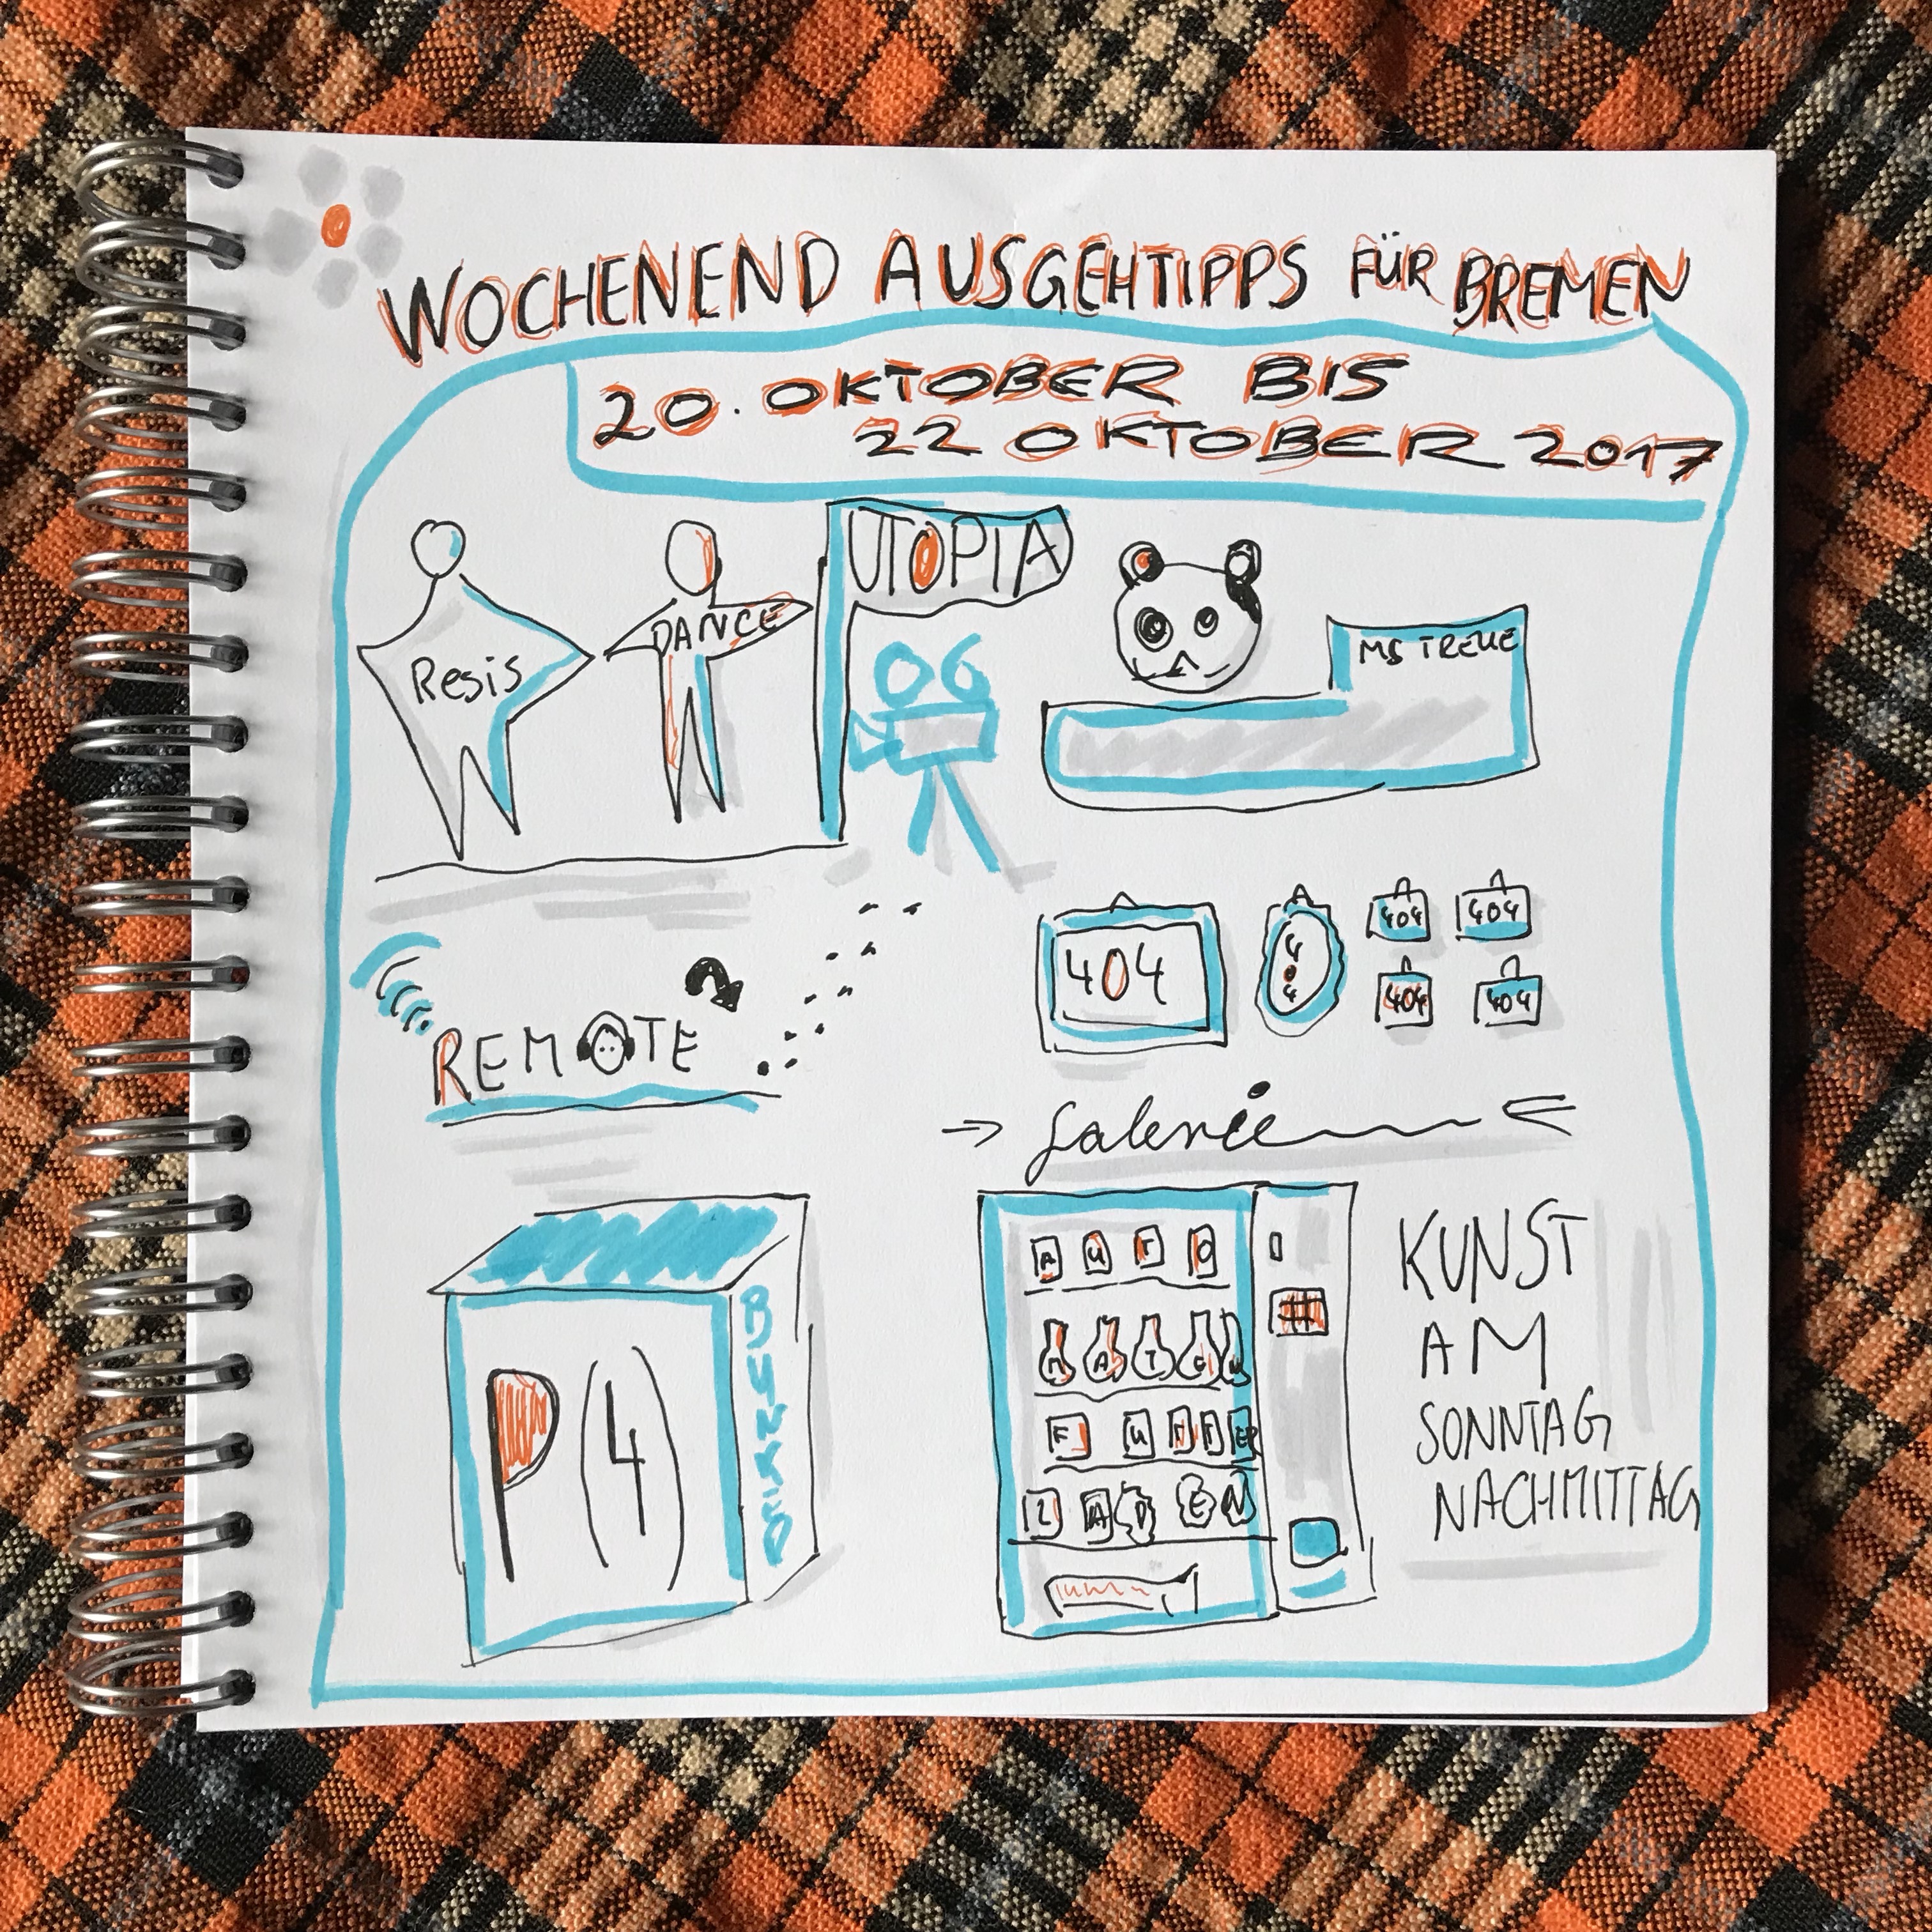 WOCHENEND AUSGEHTIPPS FÜR BREMEN
20. OKTOBER BIS
22 OKTOBER 2017
Resis
DANCE
UTOPIA
MS TREUE
REMOTE
404
404
404 404
404 404
Galerie
P (4)
BUNKER
AUTO
MATEN
F U T T ER
LADEN
KUNST
AM
SONNTAG
NACHMITTAG